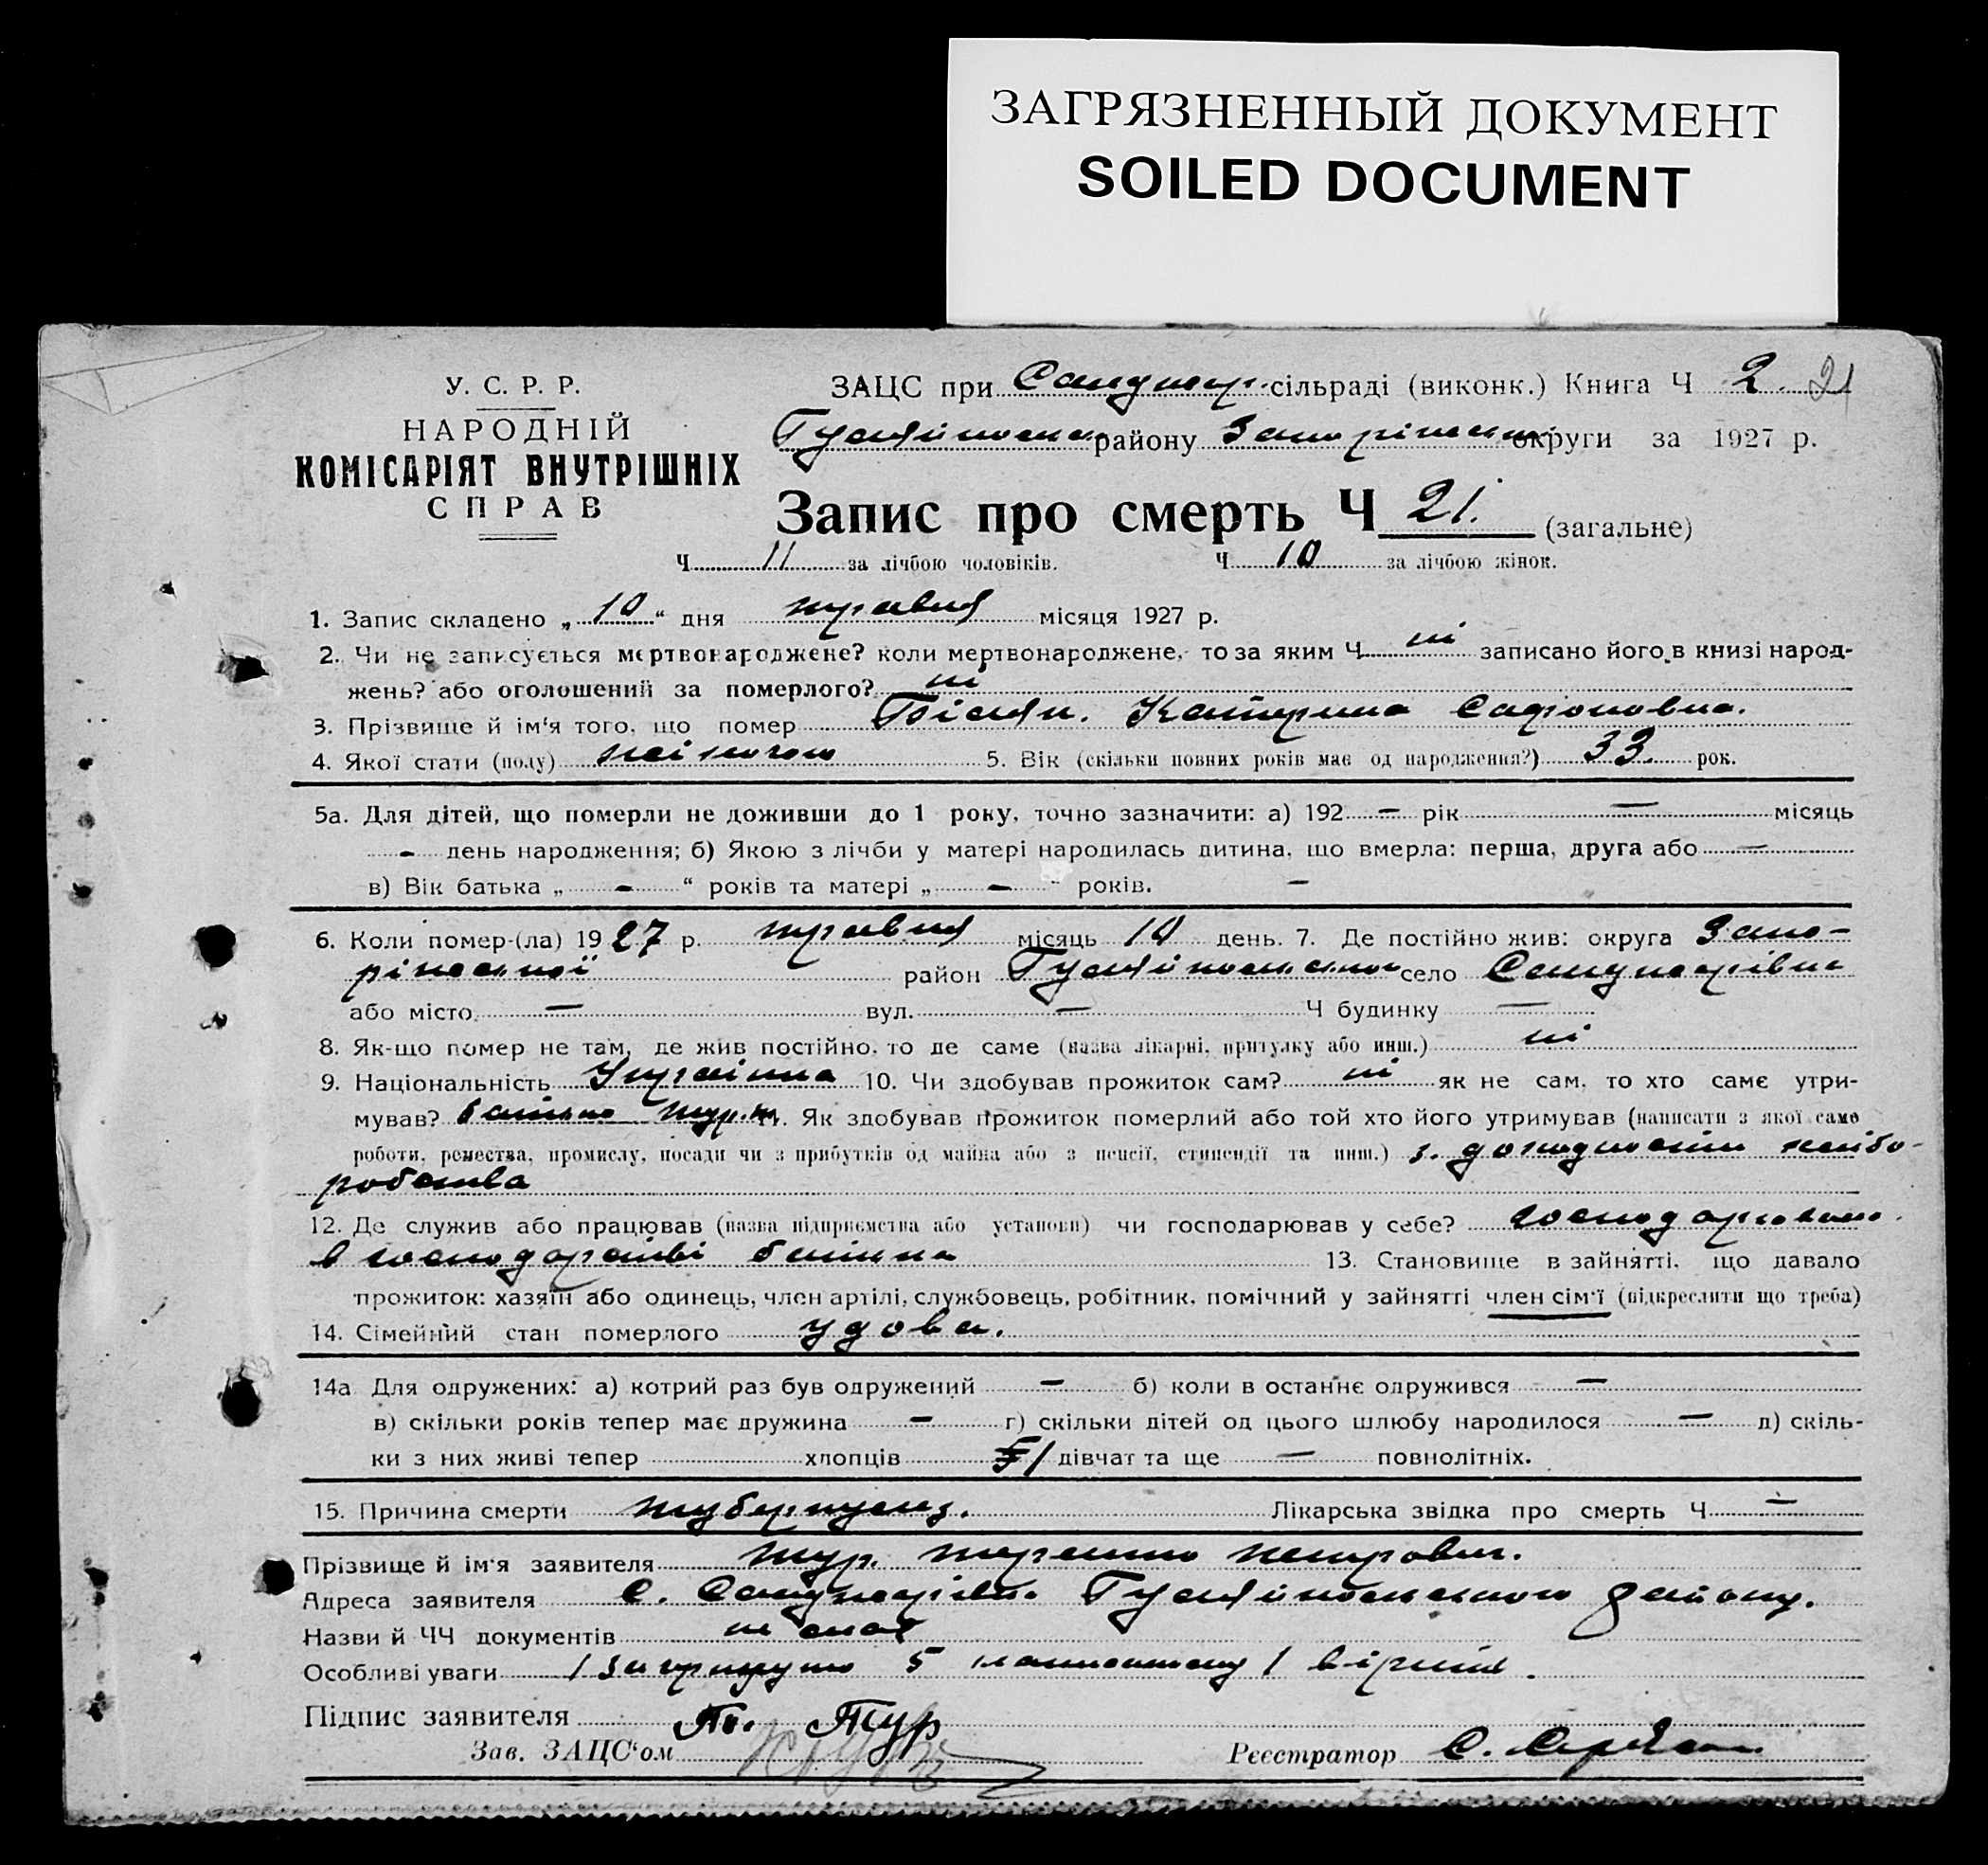 ЗАГРЯЗНЕННЫЙ ДОКУМЕНТ
SOILED DOCUMENT
У. С. Р. Р.
НАРОДНІЙ
КОМІСАРІЯТ ВНУТРІШНІХ
СПРАВ
ЗАЦС при сільраді (виконк.) Книга Ч 2. 21
району округи за 1927 р.
Запис про смерть Ч 21. (загальне)
Ч 11 за лічбою чоловіків. Ч 10 за лічбою жінок.
1. Запис складено „ 10 “ дня травня місяця 1927 р.
2. Чи не записується мертвонароджене? коли мертвонароджене, то за яким Ч ні записано його в книзі народ-
жень? або оголошений за померлого? ні
3. Прізвище й ім‘я того, що помер Катерина
4. Якої стати (полу) жіночого 5. Вік (скільки повних років має од народження?) 33. рок.
5а. Для дітей, що померли не доживши до 1 року, точно зазначити: а) 192 — рік — місяць
— день народження; б) Якою з лічби у матері народилась дитина, що вмерла: перша, друга або —
в) Вік батька „ — “ років та матері „ — “ років. —
6. Коли помер-(ла) 19 27 р. травня місяць 10 день. 7. Де постійно жив: округа Запо-
ріжської район село
або місто — вул. — Ч будинку —
8. Як-що помер не там, де жив постійно, то де саме (назва лікарні, притулку або инш.) ні
9. Національність Українка 10. Чи здобував прожиток сам? ні як не сам, то хто саме утри-
мував? батько Тур. Т. 11. Як здобував прожиток померлий або той хто його утримував (написати з якої саме
роботи, ремества, промислу, посади чи з прибутків од майна або з пенсії, стипендії та инш.) з хлібо-
робства
12. Де служив або працював (назва підприємства або установи) чи господарював у себе?
в господарстві батька 13. Становище в зайнятті, що давало
прожиток: хазяїн або одинець, член артілі, службовець, робітник, помічний у зайнятті член сім‘ї (підкреслити що треба)
14. Сімейний стан померлого удова.
14а Для одружених: а) котрий раз був одружений — б) коли в останнє одружився —
в) скільки років тепер має дружина — г) скільки дітей од цього шлюбу народилося — д) скіль-
ки з них живі тепер хлопців 5 1 дівчат та ще — повнолітніх.
15. Причина смерти туберкульоз. Лікарська звідка про смерть Ч —
Прізвище й ім‘я заявителя Тур. Петрович.
Адреса заявителя с. району.
Назви й ЧЧ документів
Особливі уваги 1 5 1 вірить.
Підпис заявителя Тур
Зав. ЗАЦС‘ом Реєстратор С.